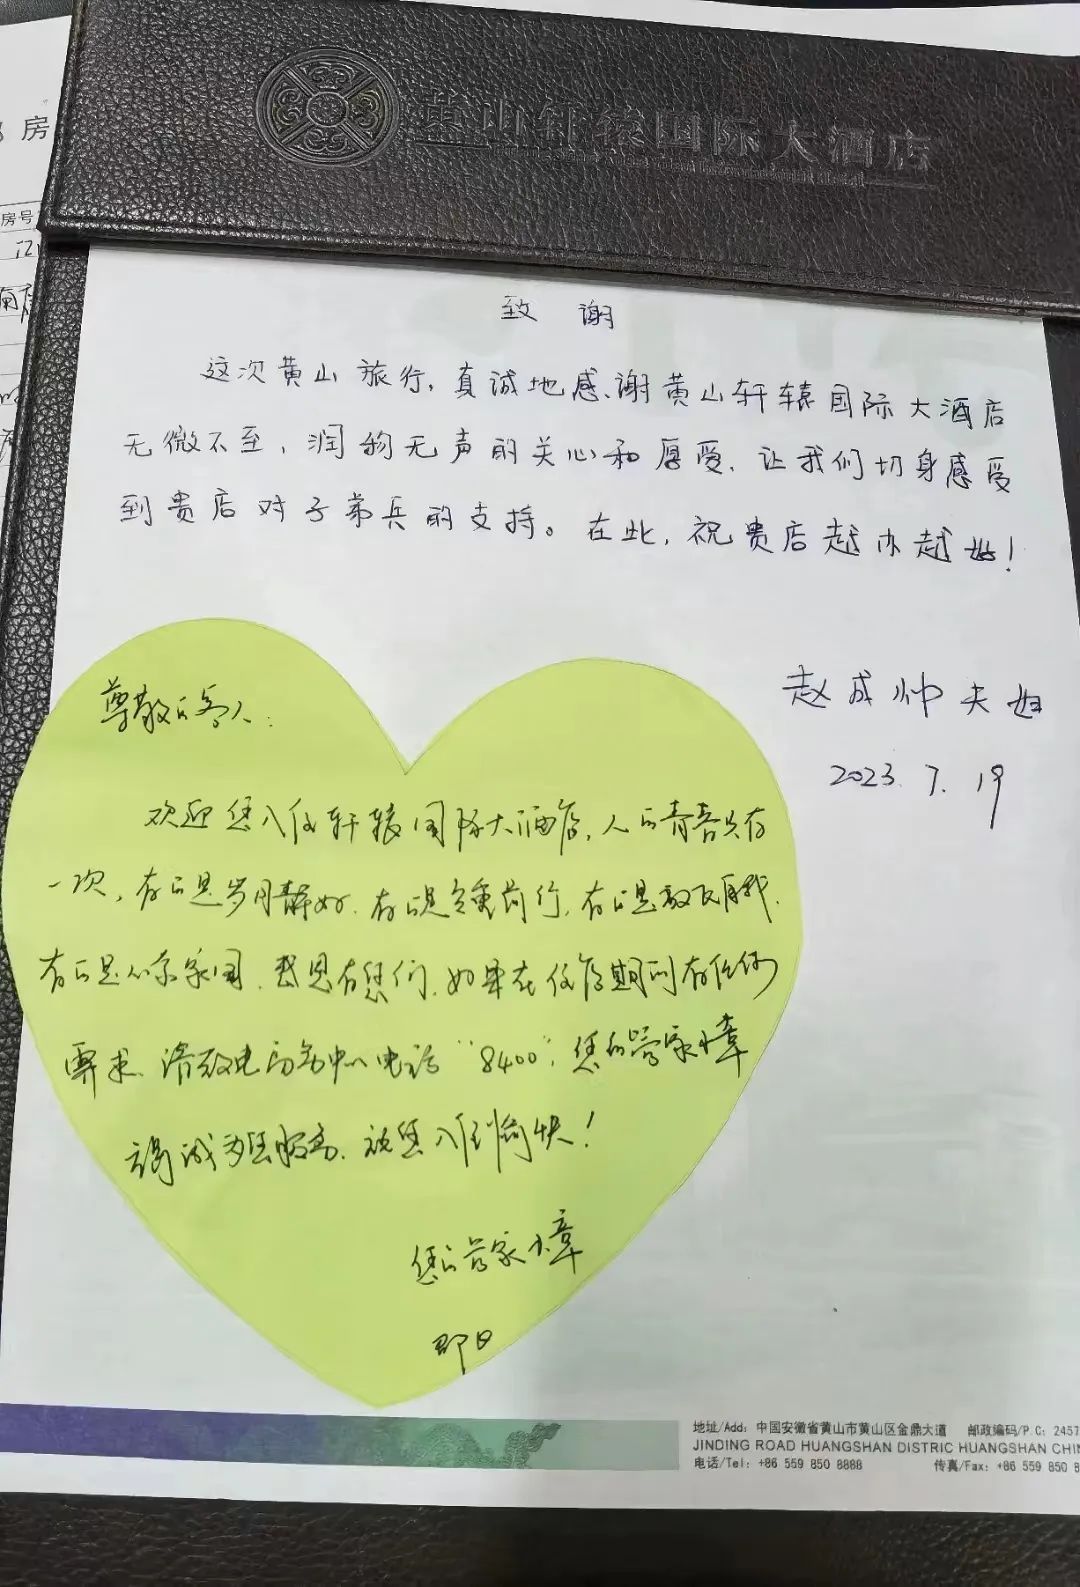 黄山轩辕国际大酒店
房
房号
致 谢
这次黄山旅行，真诚地感谢黄山轩辕国际大酒店
无微不至，润物无声的关心和厚爱，让我们切身感受
到贵店对子弟兵的支持。在此，祝贵店越办越好！
赵成帅夫妇
2023.7.19
尊敬的客人：
欢迎您入住轩辕国际大酒店，人的青春只有
一次，有的是岁月静好，有的是负重前行，有的是
有的是心系家国，感恩有您们，如果在住店期间有任何
需求，请致电房务中心电话“8400”，您的管家小章
竭诚为您服务，祝您入住愉快！
您的管家小章
即日
地址/Add：中国安徽省黄山市黄山区金鼎大道 邮政编码/P.C：2457
JINDING ROAD HUANGSHAN DISTRIC HUANGSHAN CHIN
电话/Tel：+86 559 850 8888 传真/Fax：+86 559 850 8